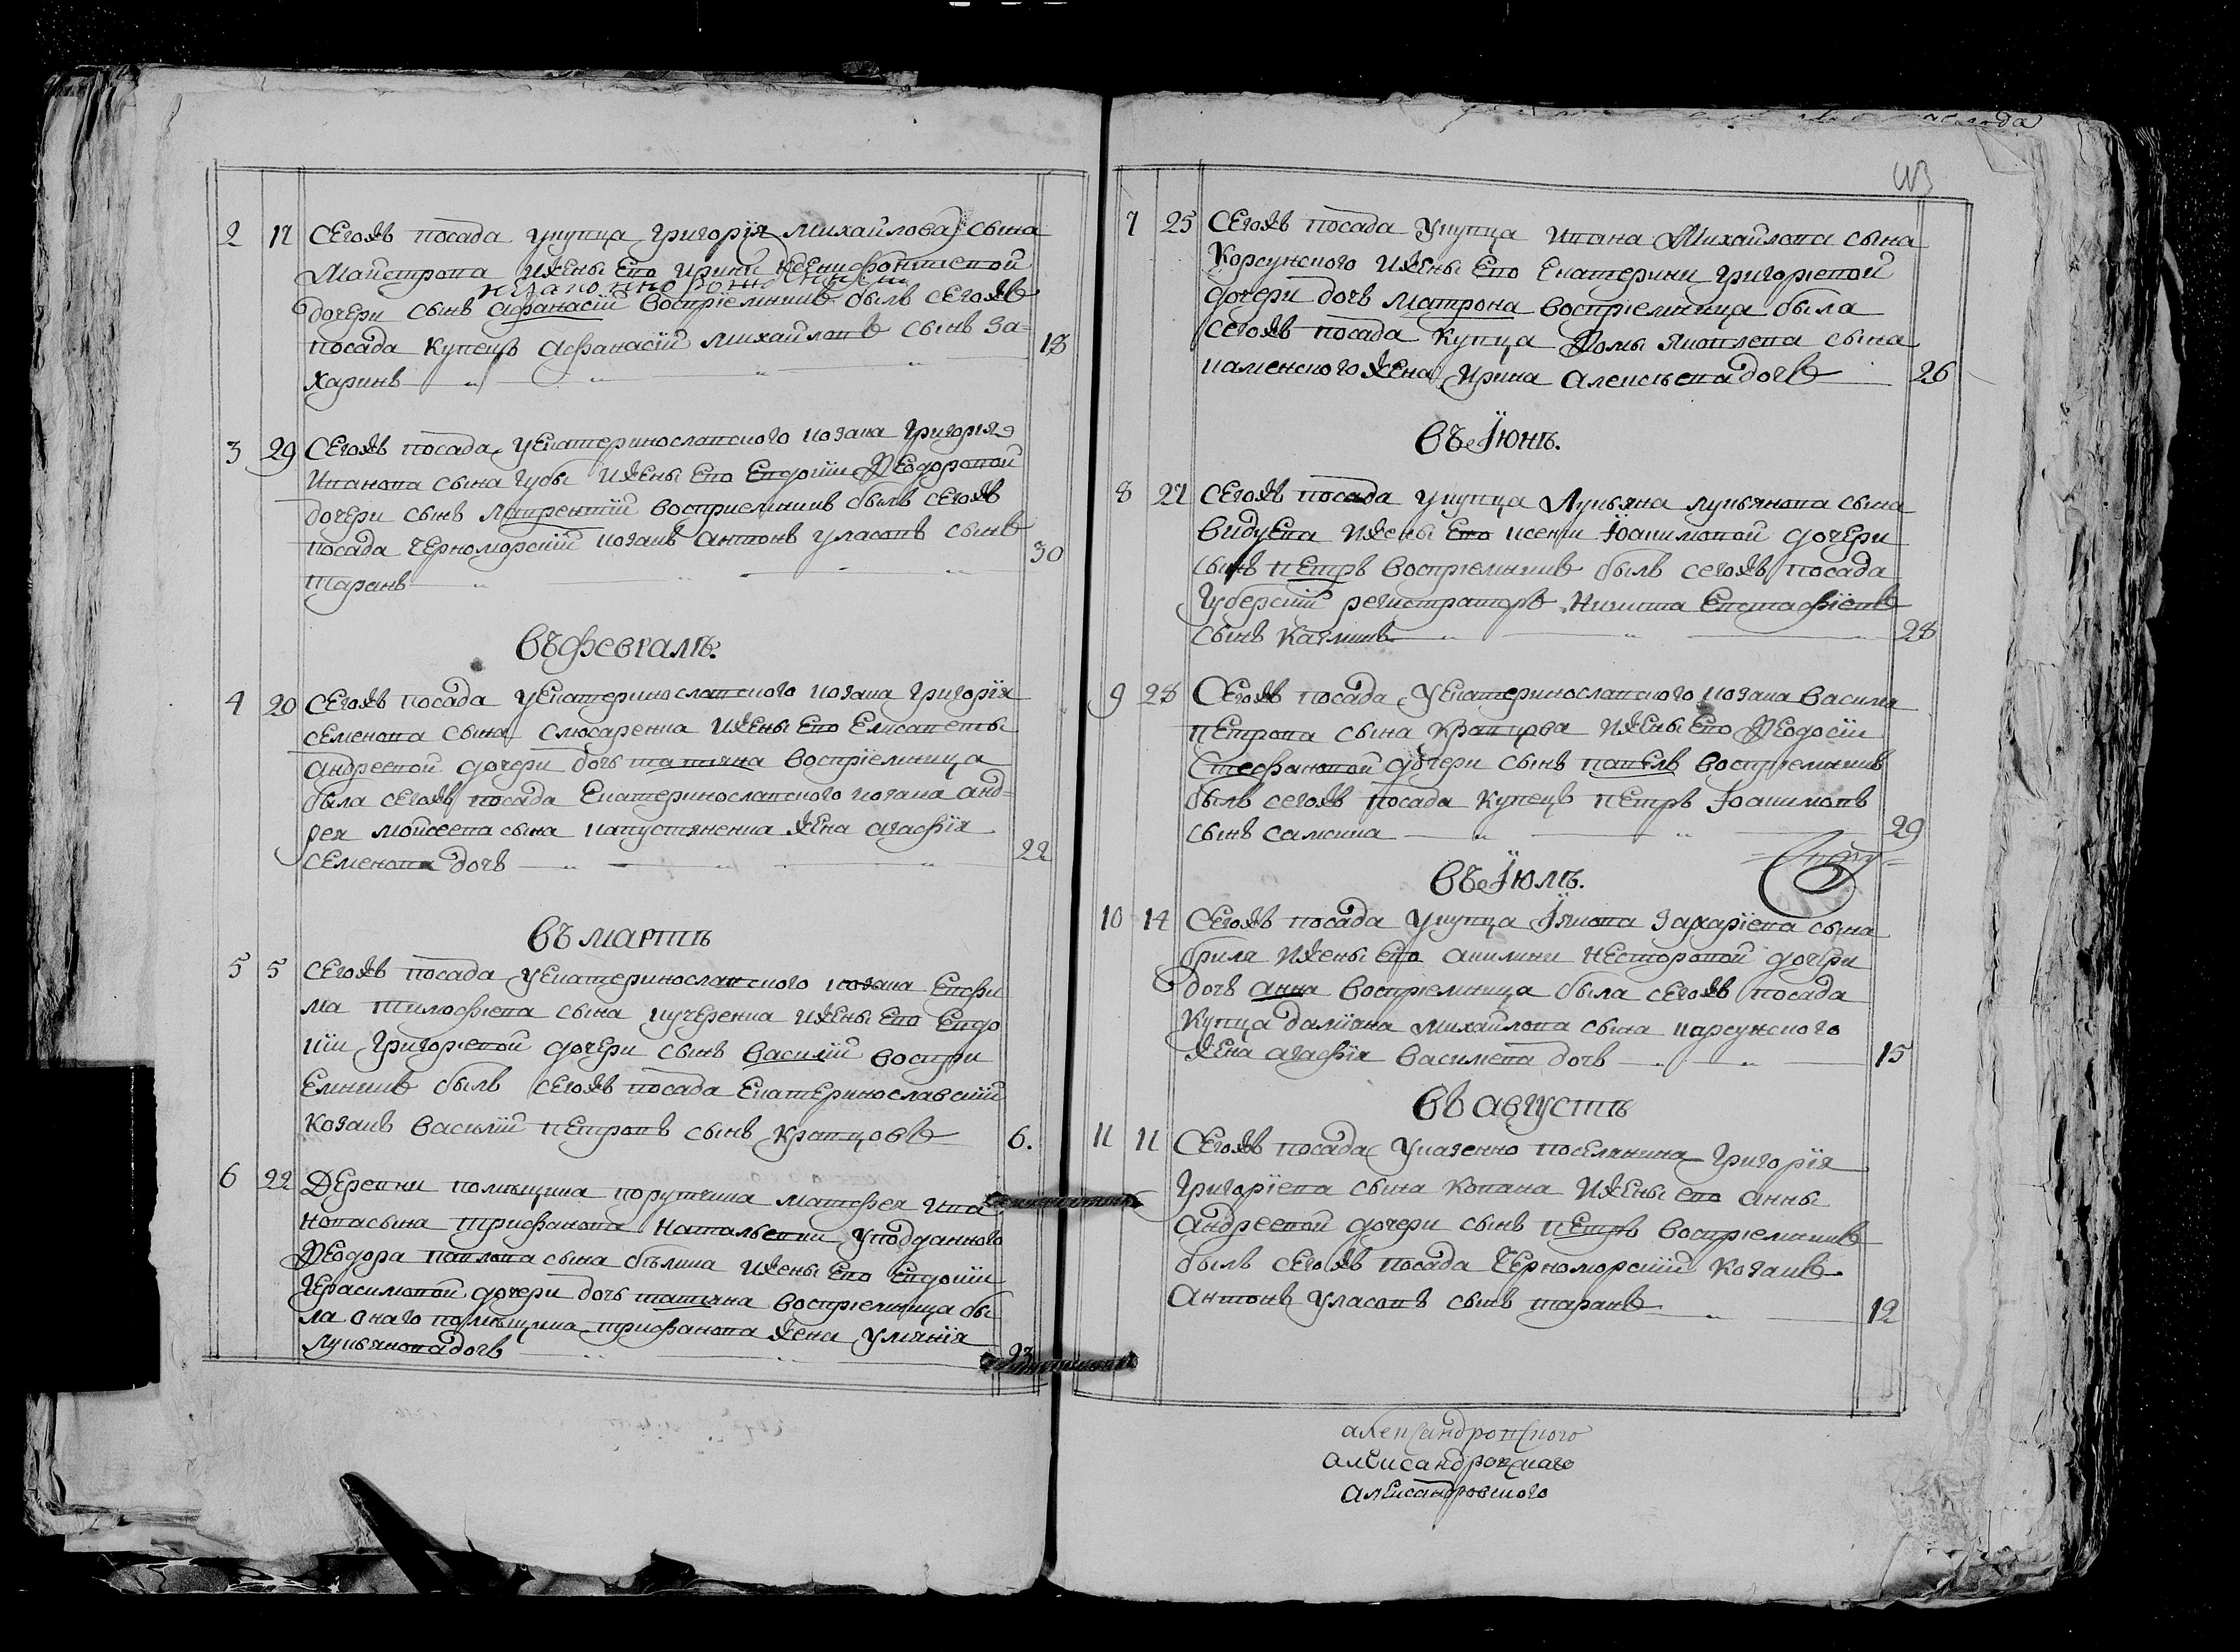 2 17 Сегожъ посада укупца Григорїя Михайлова сына
Майстрова ижены Его Ирини Ксенифонтиевой
незаконно рожденный
дочери сынъ Афанасїй воспрїемникъ былъ сегожъ
посада купецъ Афанасїй Михайловъ сынъ За-
харинъ 18
3 29 Сегожъ посада уЕкатеринославского козака Григория
Иванова сына Губы ижены Его Евдокїи Феодоровой
дочери сынъ Лаврентїй восприемникъ былъ сегожъ
посада черноморскїй козакъ Антонъ Уласовъ сынъ
таранъ 30
въ февралѣ.
4 20 Сегожъ посада уЕкатеринославского козака Григорїя
Семенова сына Слюсаренка ижены Его Елисаветы
Андреевой дочери дочь татїяна воспрїемница
была сегожъ посада Екатеринославского козака Анд-
рея Мойсеева сына капустяненка жена Агафїя
Семенова дочь 22
въ мартѣ
5 5 Сегожъ посада уЕкатеринославского козака Евфи
ма тимофїева сына кучеренка ижены Его Евдо
кїи Григорїевой дочери сынъ Василїй воспри
Емникъ былъ сегожъ посада Екатеринославскїй
козакъ Василїй петровъ сынъ Кравцовъ 6.
6 22 Деревни помѣщика порутчика Матфея Ива
нова сына трифанова Натальевки уподданного
Феодора павлова сына бѣлика ижены Его Евдокїи
Герасимовой дочери дочь татїяна воспрїемница бы
ла онаго помѣщика трифанова жена Улїянїя
Лукьянова дочь 23
7 25 Сегожъ посада укупца Ивана Михайлова сына
Корсунского ижены Его Екатерини Григорїевой
дочери дочь Матрона воспрїемница была
сегожъ посада купца Фомы Яковлева сына
каменского жена Ирина Алексѣева дочь 26
въ Їюнѣ.
8 27 Сегожъ посада укупца Лукьяна лукьянова сына
Видуева ижены Его ксении Їоакимовой дочери
сынъ петръ воспрїемникъ былъ сегожъ посада
Губерскїй регистраторъ Никита Евстафїевъ
сынъ Калминъ 28
9 28 Сегожъ посада уЕкатеринославского козака Василия
петрова сына Кравцова ижены Его Феодосїи
Стефановой дочери сынъ павелъ воспрїемникъ
былъ сегожъ посада купецъ петръ Їоакимовъ
сынъ самсика 29
въ Їюлѣ.
10 14 Сегожъ посада укупца Їякова Захарїева сына
бриля ижены его Акилини Несторовой дочери
дочь Анна воспрїемница была сегожъ посада
купца Дамїана Михайлова сына карсунского
жена Агафїя Василиева дочь 15
въ августѣ
11 11 Сегожъ посада указенно поселянина Григорїя
Григорїева сына Копана ижены его Анны
Андреевой дочери сынъ петръ воспрїемникъ
былъ сегожъ посада Черноморскїй козакъ
Антонъ Уласовъ сынъ таранъ 12
александровского
александровского
александровского